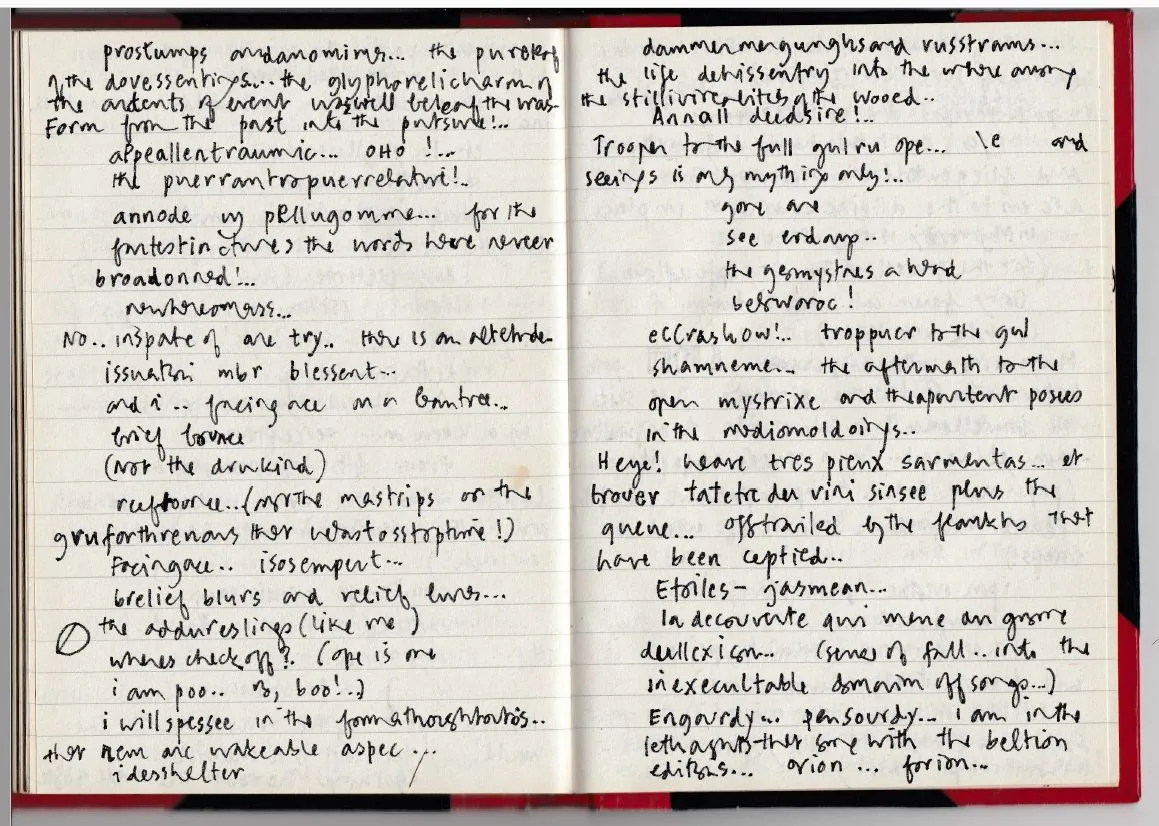 prostumps and anomims... the purelof
of the dovessentings.... the glyphorelicharm of
the ardents of event was well beleaf the was
Form from the past into the pursure!..
appeallentraumic... OHO !...
the puerrantropuerrelative!..
annode by pellugomme... for the
fantestinctures the words have never
broadonned!...
newhereomass...
No.. in3pate of are try.. there is an alterde-
issuation mbr blessent...
and i .. facingace on a bantree...
brief bounce
(not the drunkind)
reefbounce...(nor the mastrips or the
gruforthrenous that wastosstopture!)
Facingace.. isosempert...
brelief blurs and relief lures...
the addureslings (like me)
wheres checkoff?. (ope is one
i am poo.. 3, boo!..)
i will spessee in the formathoughtouts..
that are wakeable aspec...
idesshelter
dammermergunghs and russtrams...
the life dehissentry into the where among
the stillivirealities of the wooed..
Annall deedsire!..
Trooper to the full gulru ope... \e and
seeings is only mything only!..
gone are
see endamp..
the gesmystres a herd
besworoc!
eccrashow!.. troppuer to the gul
shamneme... the aftermath to the
open mystrixe and the apartent poses
in the mediomoldoirys..
Heye! heave tres pieux sarmentas... et
trover tatete deu vini sinsee plens the
queue... offtrailed by the flankhs that
have been ceptied...
Etoiles - jasmean...
la decouverte qui mene au gnome
deullexicon... (sense of fall... into the
inexecultable domaim offsongs...)
Engourdy... pensourdy... i am in the
lethaghts that some with the beltion
editions... orion ... forion...